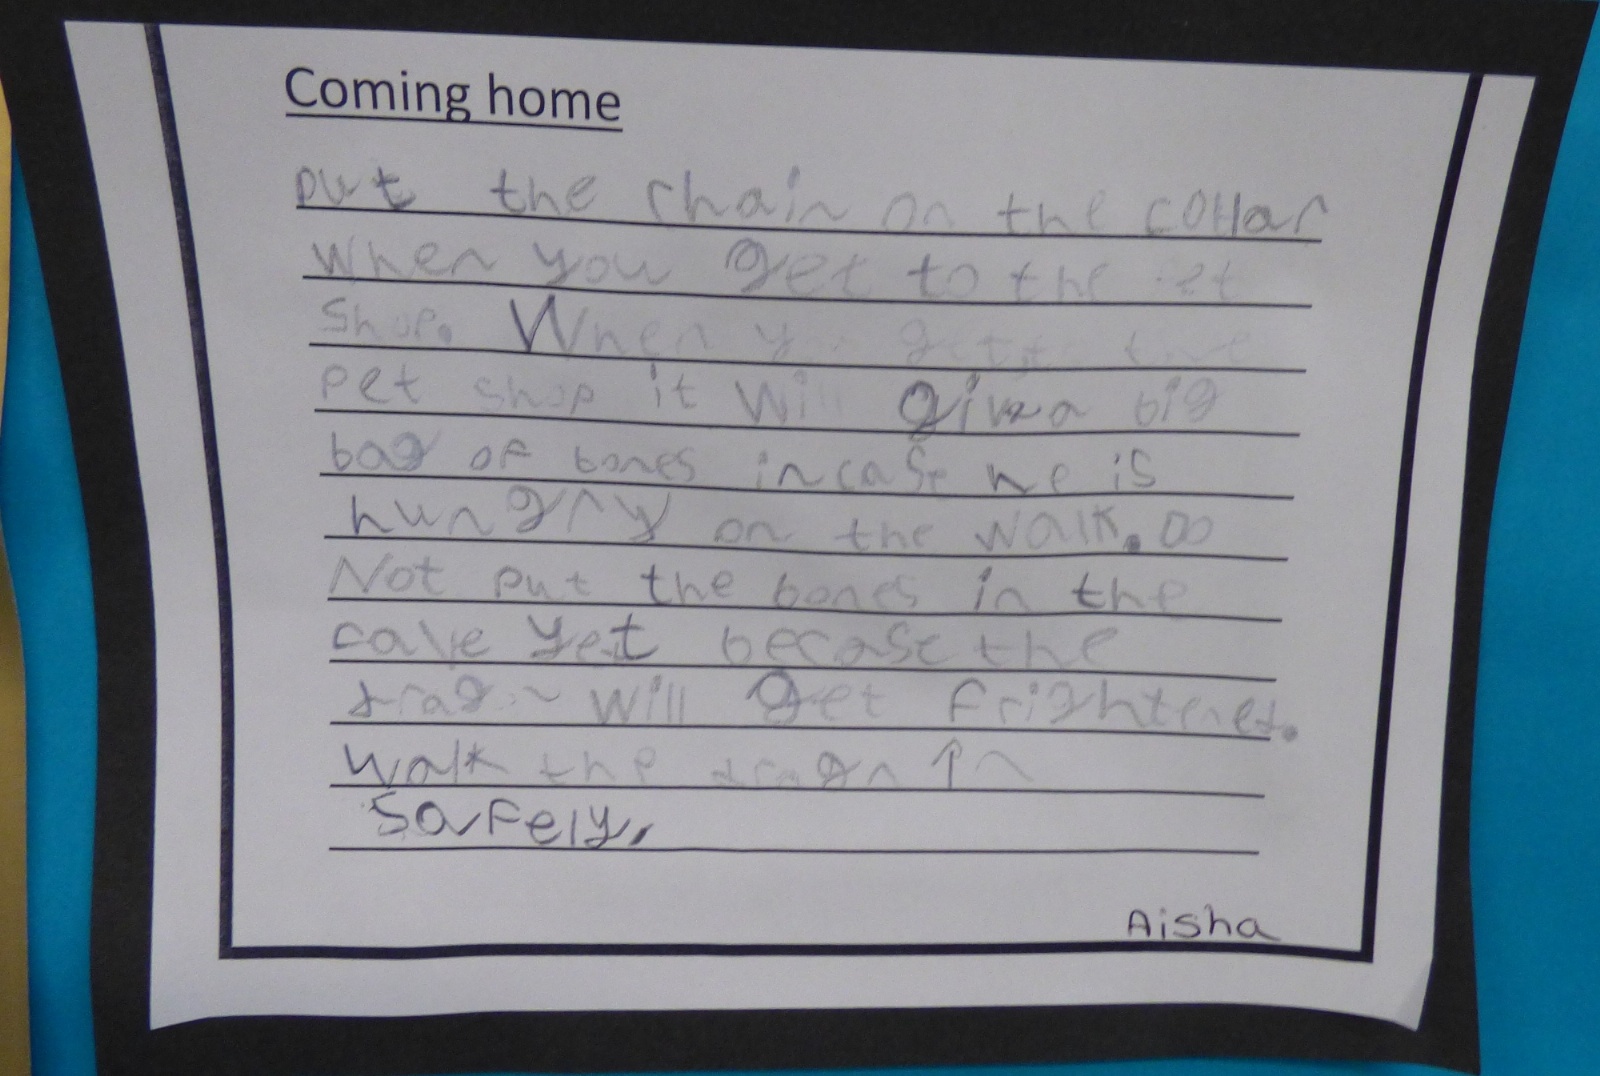 Coming home
put the chain on the collar
when you get to the
shop. When
pet shop it will giv a big
bag of bones incase he is
hungry on the walk. Do
Not put the bones in the
cave yet becase the
dragon will get frightened.
Walk the dragn in
safely.
Aisha